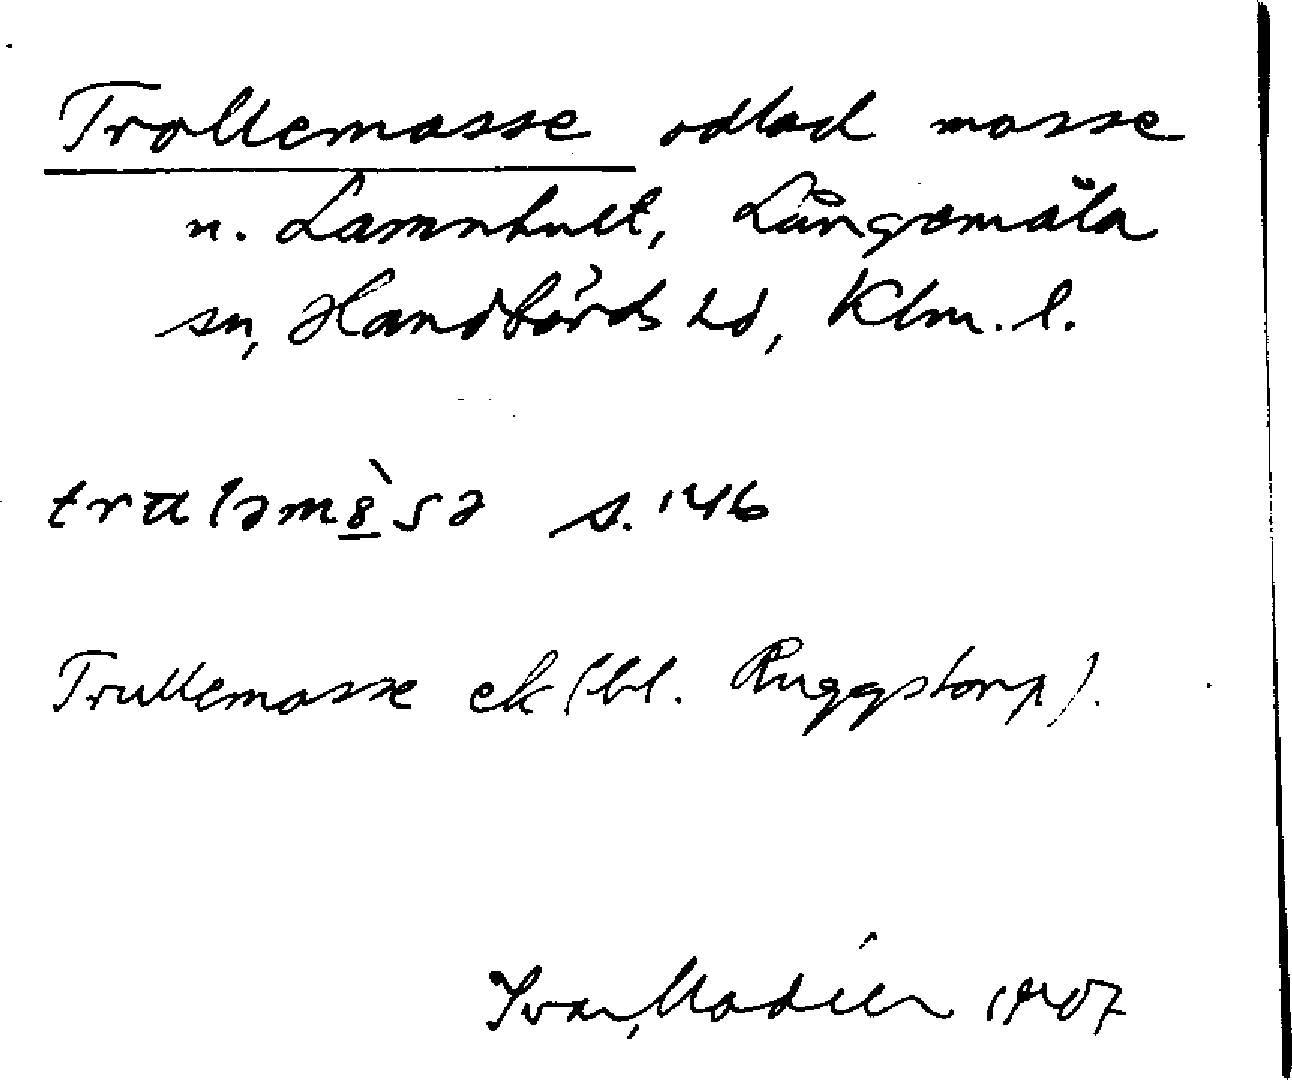 Trollemosse odlad mosse
u. Lamnhult, Långemåla
sn, Handbörds hd, Klm. l.
s. '46
Trullemosse ek (bl. Ruggstorp).
Ivar Modéer 1907